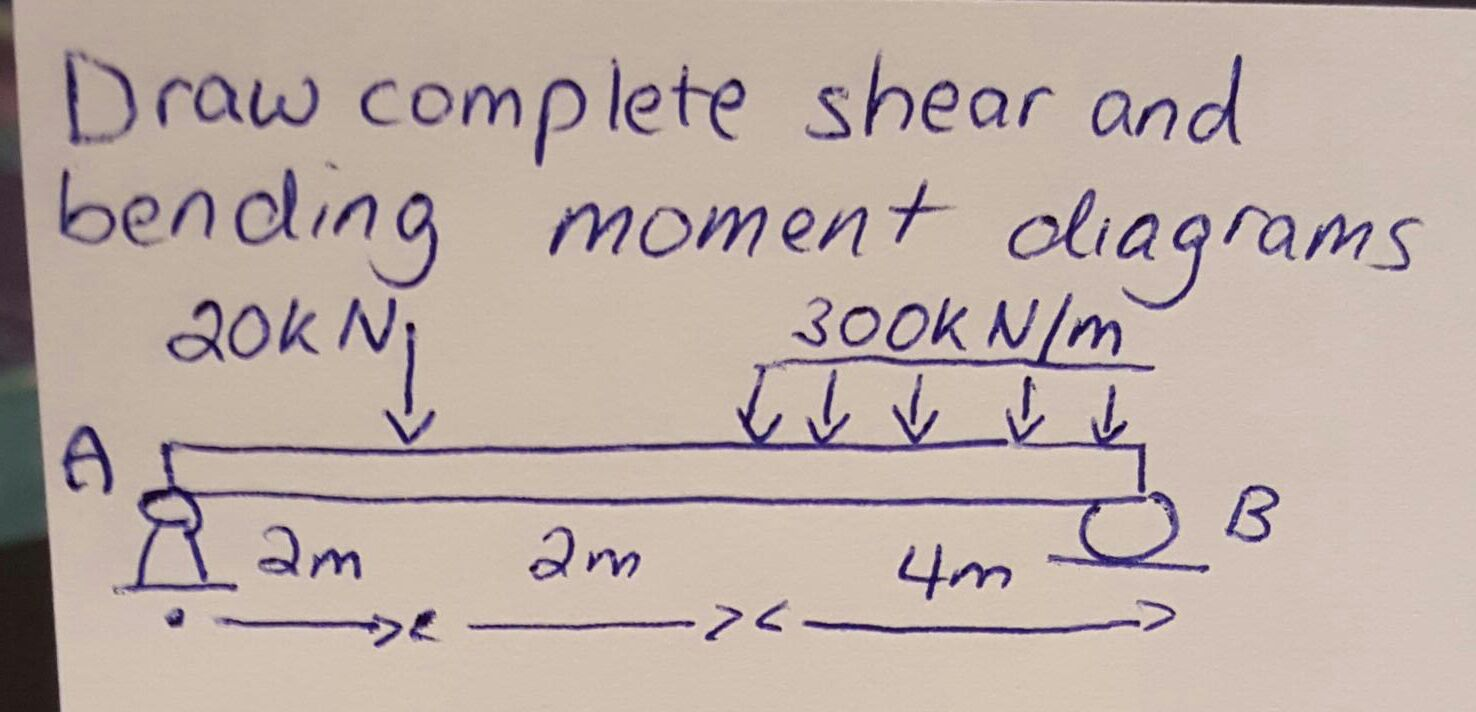 Draw complete shear and
bending moment diagrams
20kN 300kN/m
A
B
2m 2m 4m